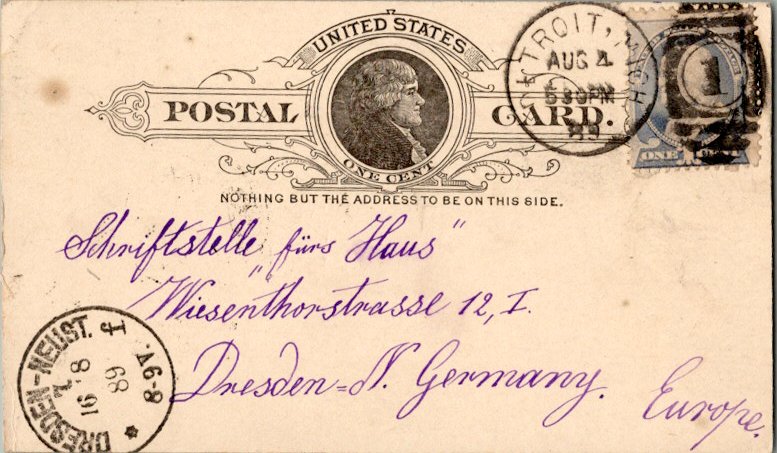 UNITED STATES
POSTAL CARD.
ONE CENT
NOTHING BUT THE ADDRESS TO BE ON THIS SIDE.
DETROIT, MICH
AUG 4
530PM
1
ONE CENT
Schriftstelle „fürs Haus“
Wiesenthorstrasse 12, I.
Dresden=N. Germany.
Europe.
DRESDEN-NEUST.
16 8
89
8-9V.